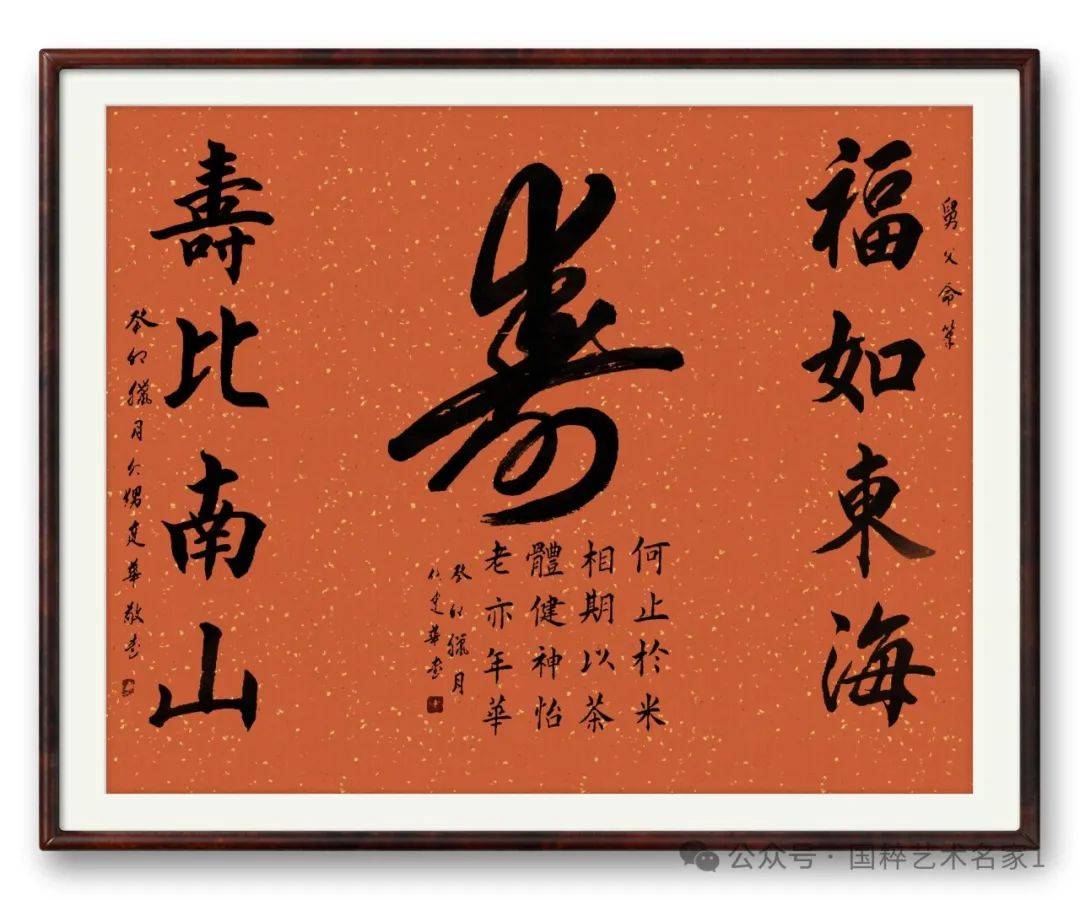 舅父命筆
福如東海
壽
何止於米
相期以茶
體健神怡
老亦年華
癸卯獵月
建華書
壽比南山
癸卯獵月 建華敬書
公众号 · 国粹艺术名家1